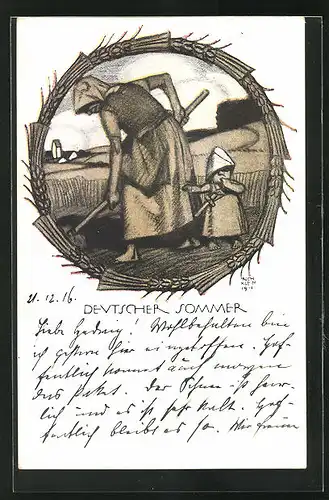 RICH
KLEIN
1915
DEVTSCHER SOMMER
21.12.16.
Liebe Hedwig! Wohlbehalten bin
ich gestern hier eingetroffen. Hof-
fentlich kommt auch morgen
das Paket. Der Schnee ist herr-
lich und es ist sehr kalt. Hof-
fentlich bleibt es so. Wir freuen